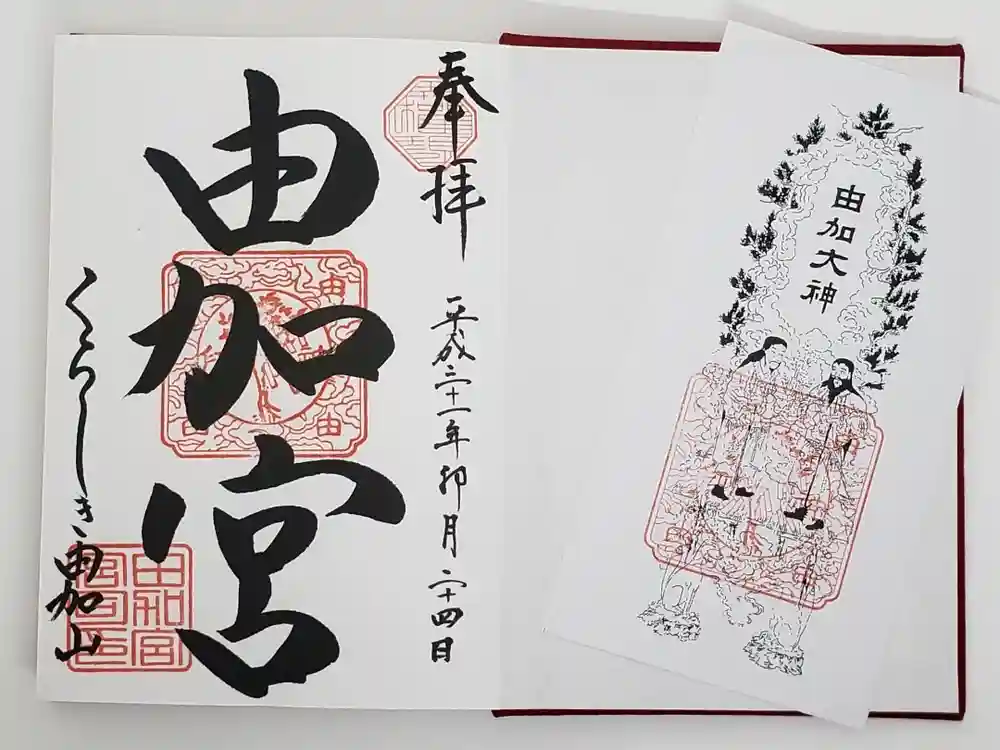 奉拝
平成二十一年卯月二十四日
由加宮
くらしき由加山
由加大神